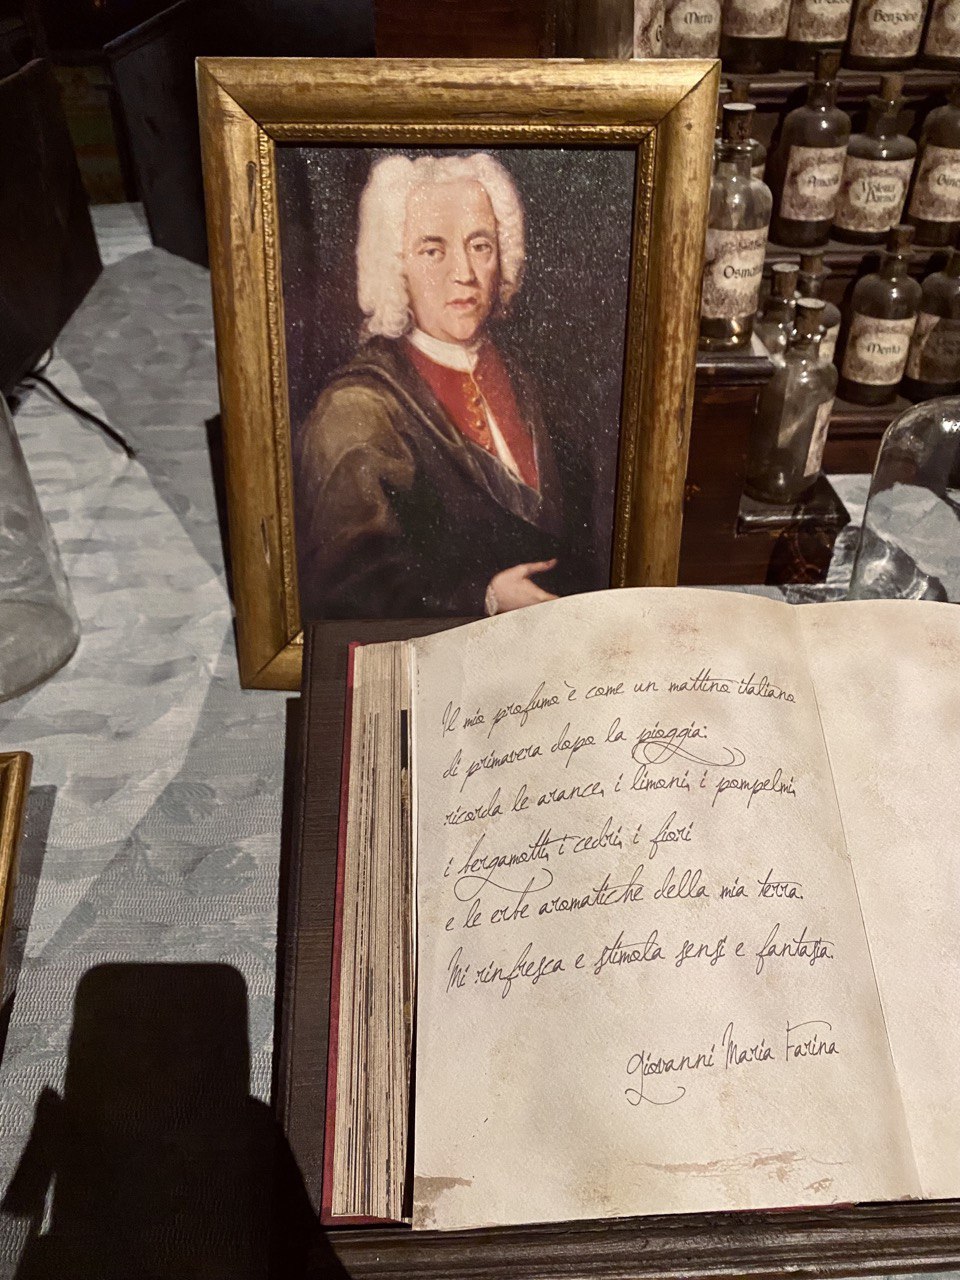 Mirra
Benzoino
Viola di Parma
Osman
Menta
Il mio profumo è come un mattino italiano
di primavera dopo la pioggia:
ricorda le arance, i limoni, i pompelmi,
i bergamotti, i cedri, i fiori
e le erbe aromatiche della mia terra.
Mi rinfresca e stimola sensi e fantasia.
Giovanni Maria Farina